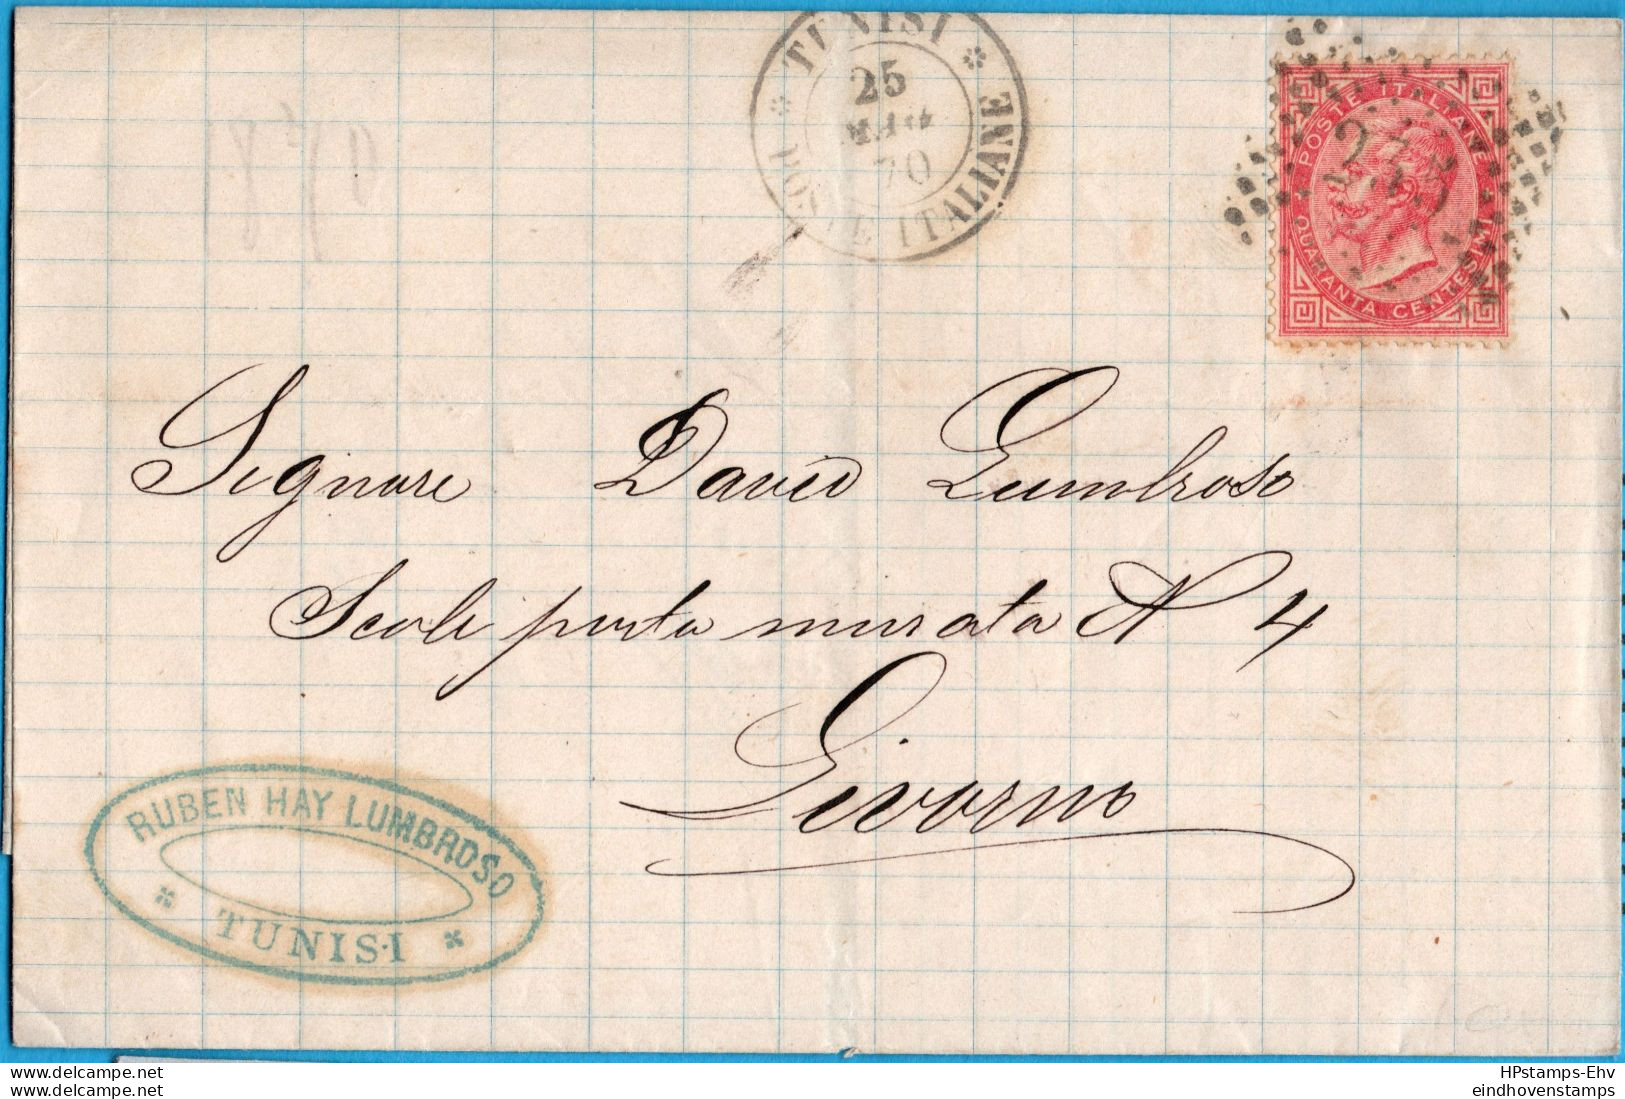 TUNISI
25
MAG
70
POSTE ITALIANE
POSTE ITALIANE
235
QUARANTA CENTESIMI
Signore David Lumbroso
Scole porta murata N 4
Livorno
RUBEN HAY LUMBROSO
TUNISI
HPstamps-Ehv
eindhovenstamps